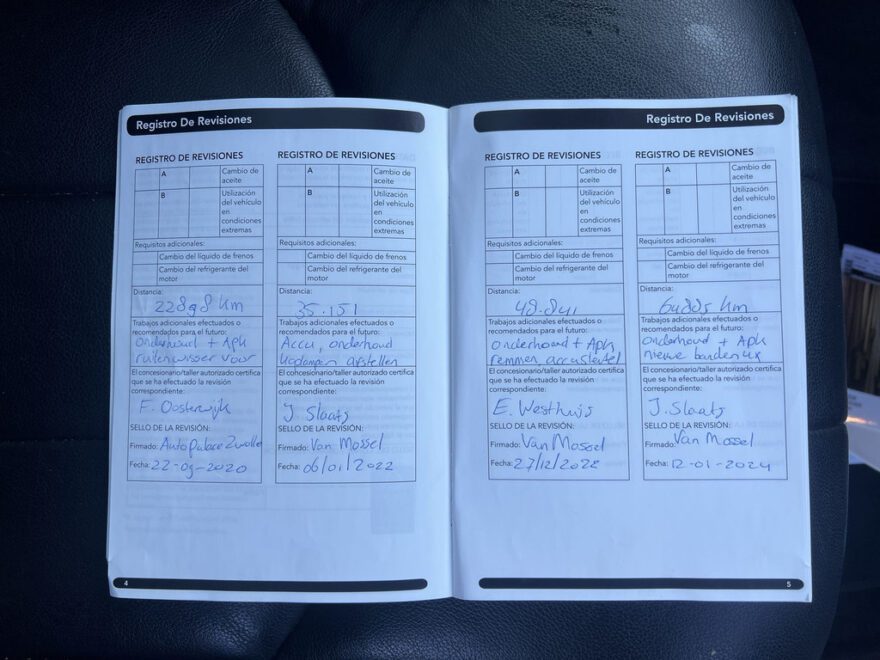 Registro De Revisiones
REGISTRO DE REVISIONES
A
Cambio de
aceite
B
Utilización
del vehículo
en
condiciones
extremas
Requisitos adicionales:
Cambio del líquido de frenos
Cambio del refrigerante del
motor
Distancia:
22898 km
Trabajos adicionales efectuados o
recomendados para el futuro:
Onderhoud + Apk
ruitenwisser voor
El concesionario/taller autorizado certifica
que se ha efectuado la revisión
correspondiente:
F. Oosterwijk
SELLO DE LA REVISIÓN:
Firmado: AutoPalace Zwolle
Fecha: 22-09-2020
4
REGISTRO DE REVISIONES
A
Cambio de
aceite
B
Utilización
del vehículo
en
condiciones
extremas
Requisitos adicionales:
Cambio del líquido de frenos
Cambio del refrigerante del
motor
Distancia:
35.151
Trabajos adicionales efectuados o
recomendados para el futuro:
Accu, onderhoud
koplampen afstellen
El concesionario/taller autorizado certifica
que se ha efectuado la revisión
correspondiente:
J. Slaats
SELLO DE LA REVISIÓN:
Firmado: Van Mossel
Fecha: 06/01/2022
Registro De Revisiones
REGISTRO DE REVISIONES
A
Cambio de
aceite
B
Utilización
del vehículo
en
condiciones
extremas
Requisitos adicionales:
Cambio del líquido de frenos
Cambio del refrigerante del
motor
Distancia:
48.841
Trabajos adicionales efectuados o
recomendados para el futuro:
onderhoud + Apk
remmen, accu sleutel
El concesionario/taller autorizado certifica
que se ha efectuado la revisión
correspondiente:
E. Westhuis
SELLO DE LA REVISIÓN:
Firmado: Van Mossel
Fecha: 27/12/2022
REGISTRO DE REVISIONES
A
Cambio de
aceite
B
Utilización
del vehículo
en
condiciones
extremas
Requisitos adicionales:
Cambio del líquido de frenos
Cambio del refrigerante del
motor
Distancia:
km
Trabajos adicionales efectuados o
recomendados para el futuro:
onderhoud + Apk
nieuwe banden
El concesionario/taller autorizado certifica
que se ha efectuado la revisión
correspondiente:
J. Slaats
SELLO DE LA REVISIÓN:
Firmado: Van Mossel
Fecha: 12-01-2024
5